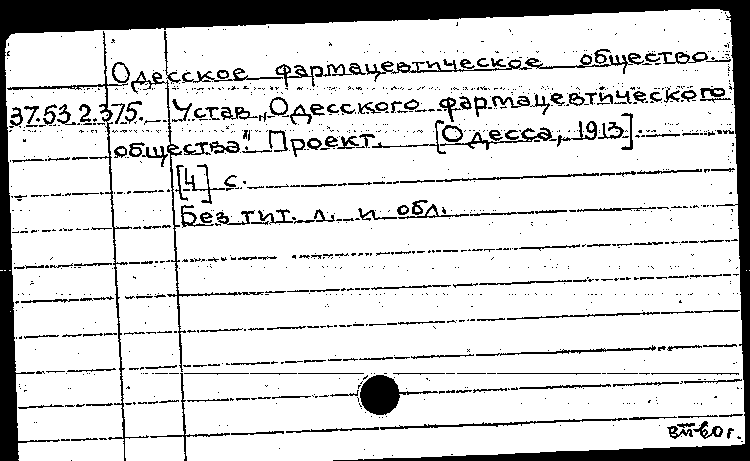 Одесское фармацевтическое общество.
37.53.2.375. Устав „Одесского фармацевтического
общества". Проект. [Одесса, 1913].
[4] с.
Без тит. л. и обл.